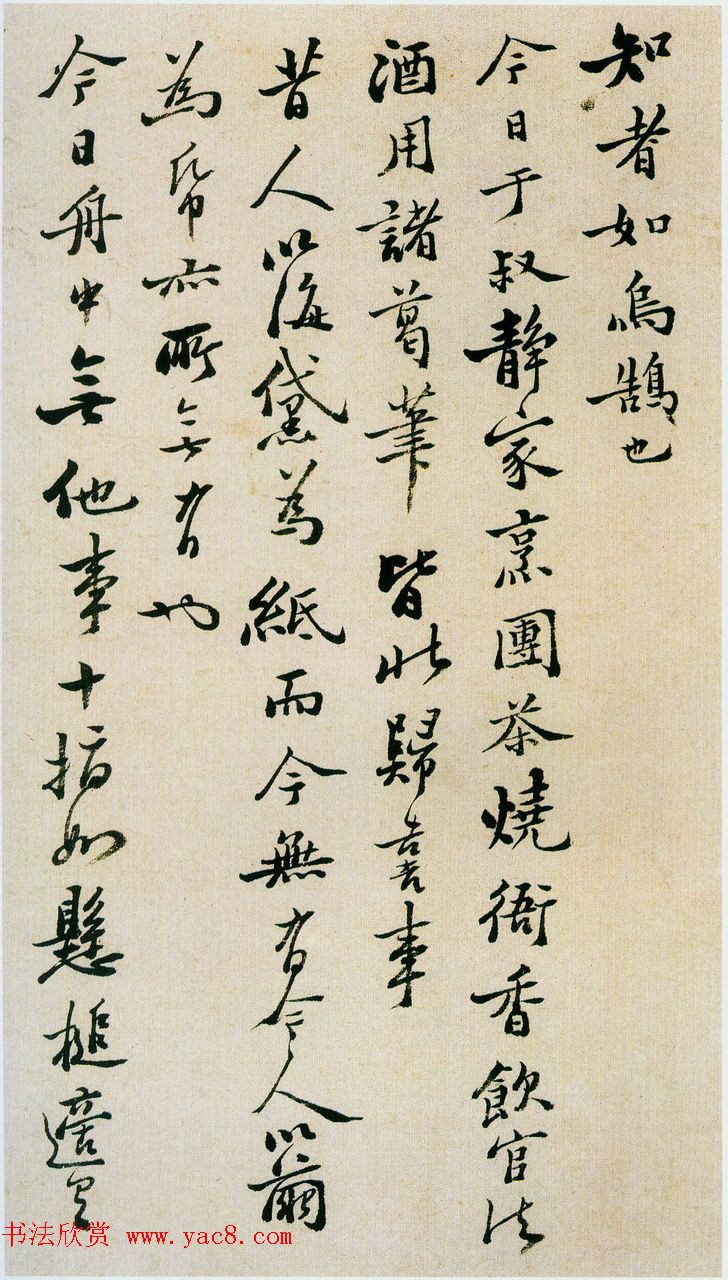 知者如烏鵠也
今日于叔静家烹團茶燒衙香飲官法
酒用諸葛筆皆北歸喜事
昔人以海黛為紙而今無有今人以繭
為帋亦所無有也
今日舟中無他事十指如懸槌適
书法欣赏 www.yac8.com